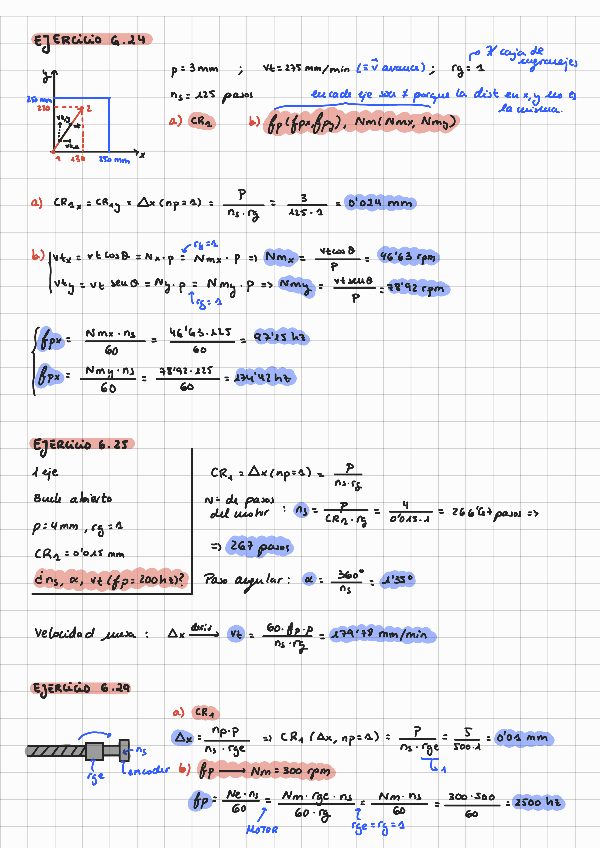 EJERCICIO 6.24
p = 3 mm ; vt = 275 mm/min (= v⃗ avance) ; rg = 1
∄ caja de engranajes
ns = 125 pasos
en cada eje son ≠ porque la dist en x, y no es la misma.
a) CR1 b) fp (fpx, fpy), Nm (Nmx, Nmy)
y
250 mm
220
2
vty
vt
vtx
θ
1
130
250 mm
x
a) CR1x = CR1y = Δx (np=1) = p / ns · rg = 3 / 125 · 1 = 0'024 mm
rg = 1
b) vtx = vt cosθ = Nx · p = Nmx · p => Nmx = vt cosθ / p = 46'63 rpm
vty = vt senθ = Ny · p = Nmy · p => Nmy = vt senθ / p = 78'92 rpm
rg = 1
fpx = Nmx · ns / 60 = 46'63 · 125 / 60 = 97'15 hz
fpx = Nmy · ns / 60 = 78'92 · 125 / 60 = 174'42 hz
EJERCICIO 6.25
1 eje
Bucle abierto
p = 4 mm , rg = 1
CR1 = 0'015 mm
¿ns, α, vt (fp = 200 hz)?
CR1 = Δx (np=1) = p / ns · rg
N = de pasos del motor : ns = p / CR1 · rg = 4 / 0'015 · 1 = 266'67 pasos =>
=> 267 pasos
Paso angular : α = 360° / ns = 1'35°
Velocidad mesa : Δx deriv → vt = 60 · fp · p / ns · rg = 179'78 mm/min
EJERCICIO 6.29
ns
rge
encoder
a) CR1
Δx = np · p / ns · rge => CR1 (Δx, np=1) = p / ns · rge = 5 / 500 · 1 = 0'01 mm
1
b) fp → Nm = 300 rpm
fp = Ne · ns / 60 = Nm · rge · ns / 60 · rg = Nm · ns / 60 = 300 · 500 / 60 = 2500 hz
MOTOR
rge = rg = 1